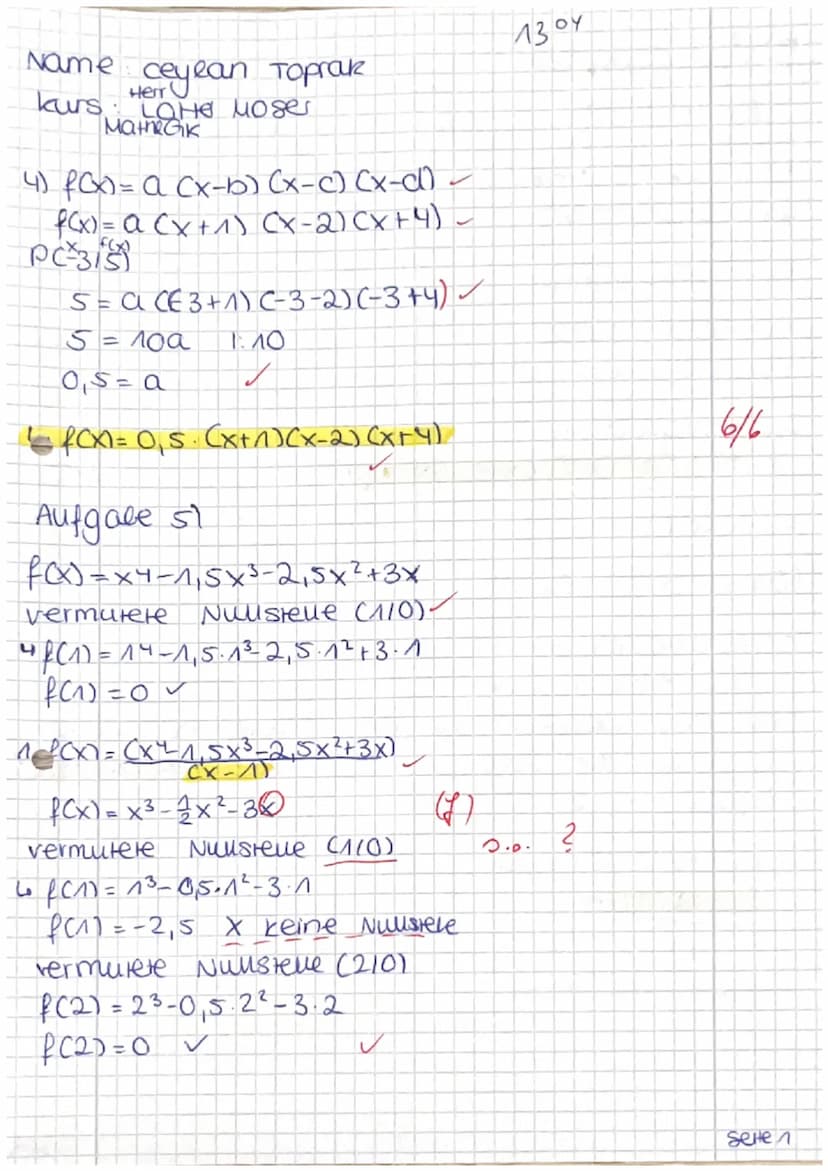 13 04
Name: Ceylan Toprak
Herr
Kurs: LQH0 Moser
Mathe GK
4) f(x) = a (x-b) (x-c) (x-d) ✓
f(x) = a (x+1) (x-2) (x+4) ✓
x f(x)
P(-3|5)
5 = a ((-3+1) (-3-2) (-3+4) ✓
5 = 10a |:10
0,5 = a ✓
↳ f(x) = 0,5 · (x+1) (x-2) (x+4) 6/6
✓
Aufgabe 5)
f(x) = x4 - 1,5x³ - 2,5x² + 3x
vermutete Nullstelle (1|0) ✓
↳ f(1) = 1 4 - 1,5 · 1³ - 2,5 · 1² + 3 · 1
f(1) = 0 ✓
1. f(x) = (x⁴ - 1,5x³ - 2,5x² + 3x) ✓
(x - 1)
f(x) = x³ - ½x² - 3x (f)
vermutete Nullstelle (1|0) s.o. ?
↳ f(1) = 1³ - 0,5 · 1² - 3 · 1
f(1) = -2,5 x keine Nullstelle
vermutete Nullstelle (2|0)
f(2) = 2³ - 0,5 · 2² - 3 · 2
f(2) = 0 ✓ ✓
Seite 1